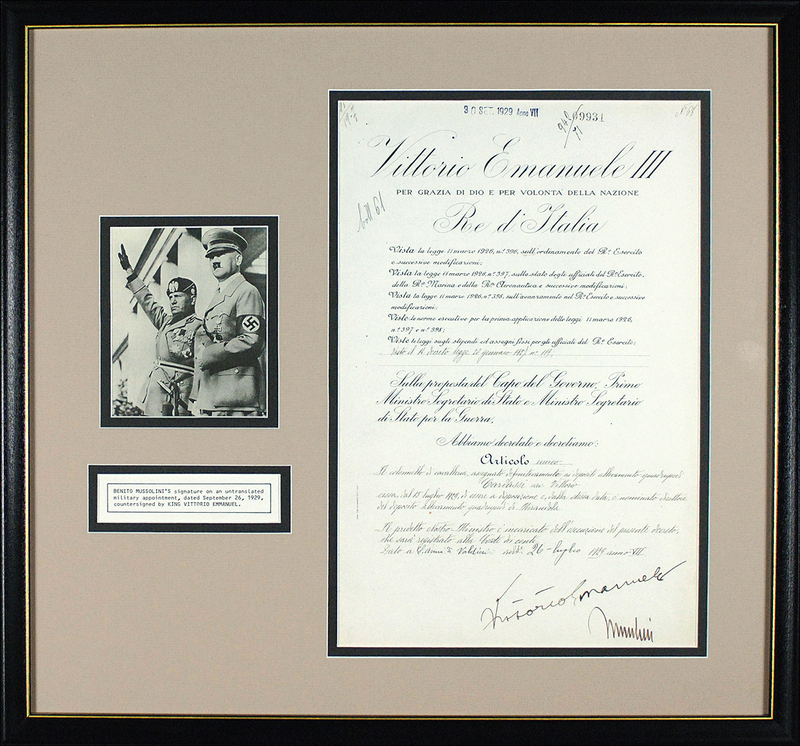 30 SET. 1929 Anno VII
69931
Vittorio Emanuele III
PER GRAZIA DI DIO E PER VOLONTÀ DELLA NAZIONE
Re d'Italia
Vista la legge 11 marzo 1926, n° 396, sull'ordinamento del R° Esercito
e successive modificazioni;
Vista la legge 11 marzo 1926, n° 397, sullo stato degli ufficiali del R° Esercito,
della Ra Marina e della Ra Aeronautica e successive modificazioni;
Vista la legge 11 marzo 1926, n° 398, sull'avanzamento nel R° Esercito e successive
modificazioni;
Viste le norme esecutive per la prima applicazione delle leggi 11 marzo 1926,
n° 397 e n° 398;
Viste le leggi sugli stipendi ed assegni fissi per gli ufficiali del R° Esercito;
Visto il R. decreto legge 26 gennaio
Sulla proposta del Capo del Governo, Primo
Ministro Segretario di Stato e Ministro Segretario
di Stato per la Guerra;
Abbiamo decretato e decretiamo:
Articolo unico
Il colonnello di cavalleria,
cessa dal 15 luglio 1929, di essere a disposizione e, dalla stessa data, è nominato direttore
del deposito allevamento quadrupedi di
Il predetto Nostro Ministro è incaricato dell'esecuzione del presente decreto,
che sarà registrato alla Corte dei conti.
Dato a S. Anna di Valdieri addì 26 luglio 1929 anno VII
Vittorio Emanuele
Mussolini
BENITO MUSSOLINI'S signature on an untranslated
military appointment, dated September 26, 1929,
countersigned by KING VITTORIO EMMANUEL.